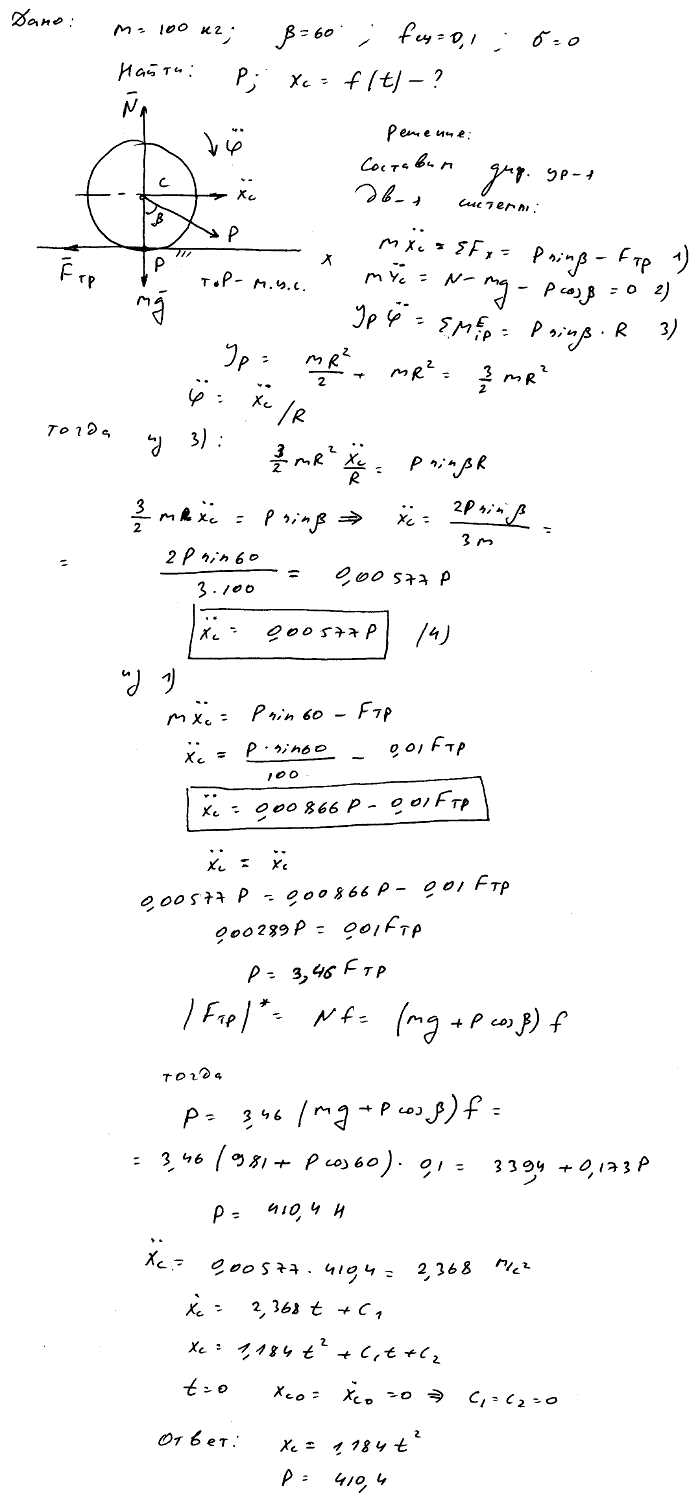 Дано: m = 100 кг; β = 60°; fсц = 0,1; δ = 0
Найти: P; xc = f(t) - ?
N̄
φ̈
C
ẍc
β
P
x
F̄тр
P
mḡ
т.P - м.ц.с.
Решение:
Составим диф. ур-я
дв-я системы:
mẍc = ΣFx = P sinβ - Fтр 1)
mÿc = N - mg - P cosβ = 0 2)
Jp φ̈ = ΣM^E_iP = P sinβ · R 3)
Jp = mR²/2 + mR² = 3/2 mR²
φ̈ = ẍc/R
тогда из 3):
3/2 mR² ẍc/R = P sinβR
3/2 mRẍc = P sinβ ⇒ ẍc = 2P sinβ/3m =
= 2P sin60/3·100 = 0,00577P
ẍc = 0,00577P (4)
из 1)
mẍc = P sin60 - Fтр
ẍc = P·sin60/100 - 0,01Fтр
ẍc = 0,00866P - 0,01Fтр
ẍc = ẍc
0,00577P = 0,00866P - 0,01Fтр
0,00289P = 0,01Fтр
P = 3,46Fтр
|Fтр|* = Nf = (mg + P cosβ) f
тогда
P = 3,46 (mg + P cosβ) f =
= 3,46 (981 + P cos60) · 0,1 = 339,4 + 0,173P
P = 410,4 Н
ẍc = 0,00577·410,4 = 2,368 м/с²
ẋc = 2,368t + C₁
xc = 1,184t² + C₁t + C₂
t=0 xc0 = ẋc0 = 0 ⇒ C₁ = C₂ = 0
Ответ: xc = 1,184t²
P = 410,4